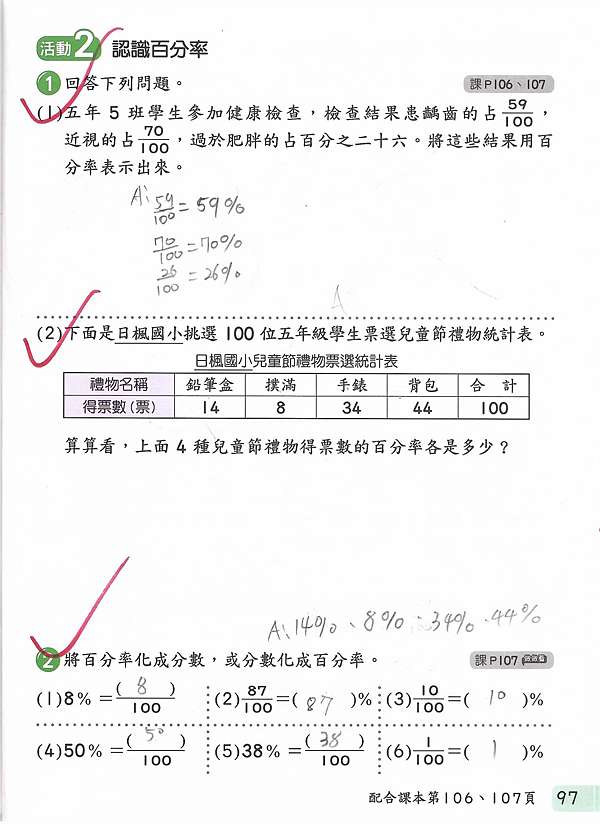 活動2 認識百分率
1 回答下列問題。 課P106、107
(1)五年 5 班學生參加健康檢查，檢查結果患齲齒的占59/100，
近視的占70/100，過於肥胖的占百分之二十六。將這些結果用百
分率表示出來。
A: 59/100 = 59%
70/100 = 70%
26/100 = 26%
A
(2)下面是日楓國小挑選 100 位五年級學生票選兒童節禮物統計表。
日楓國小兒童節禮物票選統計表
禮物名稱 鉛筆盒 撲滿 手錶 背包 合計
得票數(票) 14 8 34 44 100
算算看，上面 4 種兒童節禮物得票數的百分率各是多少？
A: 14%、8%、34%、44%
2 將百分率化成分數，或分數化成百分率。 課P107 做做看
(1)8% = ( 8 )/100 (2)87/100 = ( 87 )% (3)10/100 = ( 10 )%
(4)50% = ( 50 )/100 (5)38% = ( 38 )/100 (6)1/100 = ( 1 )%
配合課本第106、107頁 97